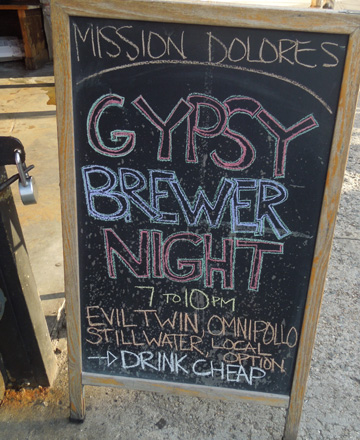 MISSION DOLORES
GYPSY
BREWER
NIGHT
7 TO 10 PM
EVIL TWIN OMNIPOLLO
STILLWATER LOCAL
OPTION
→ DRINK CHEAP